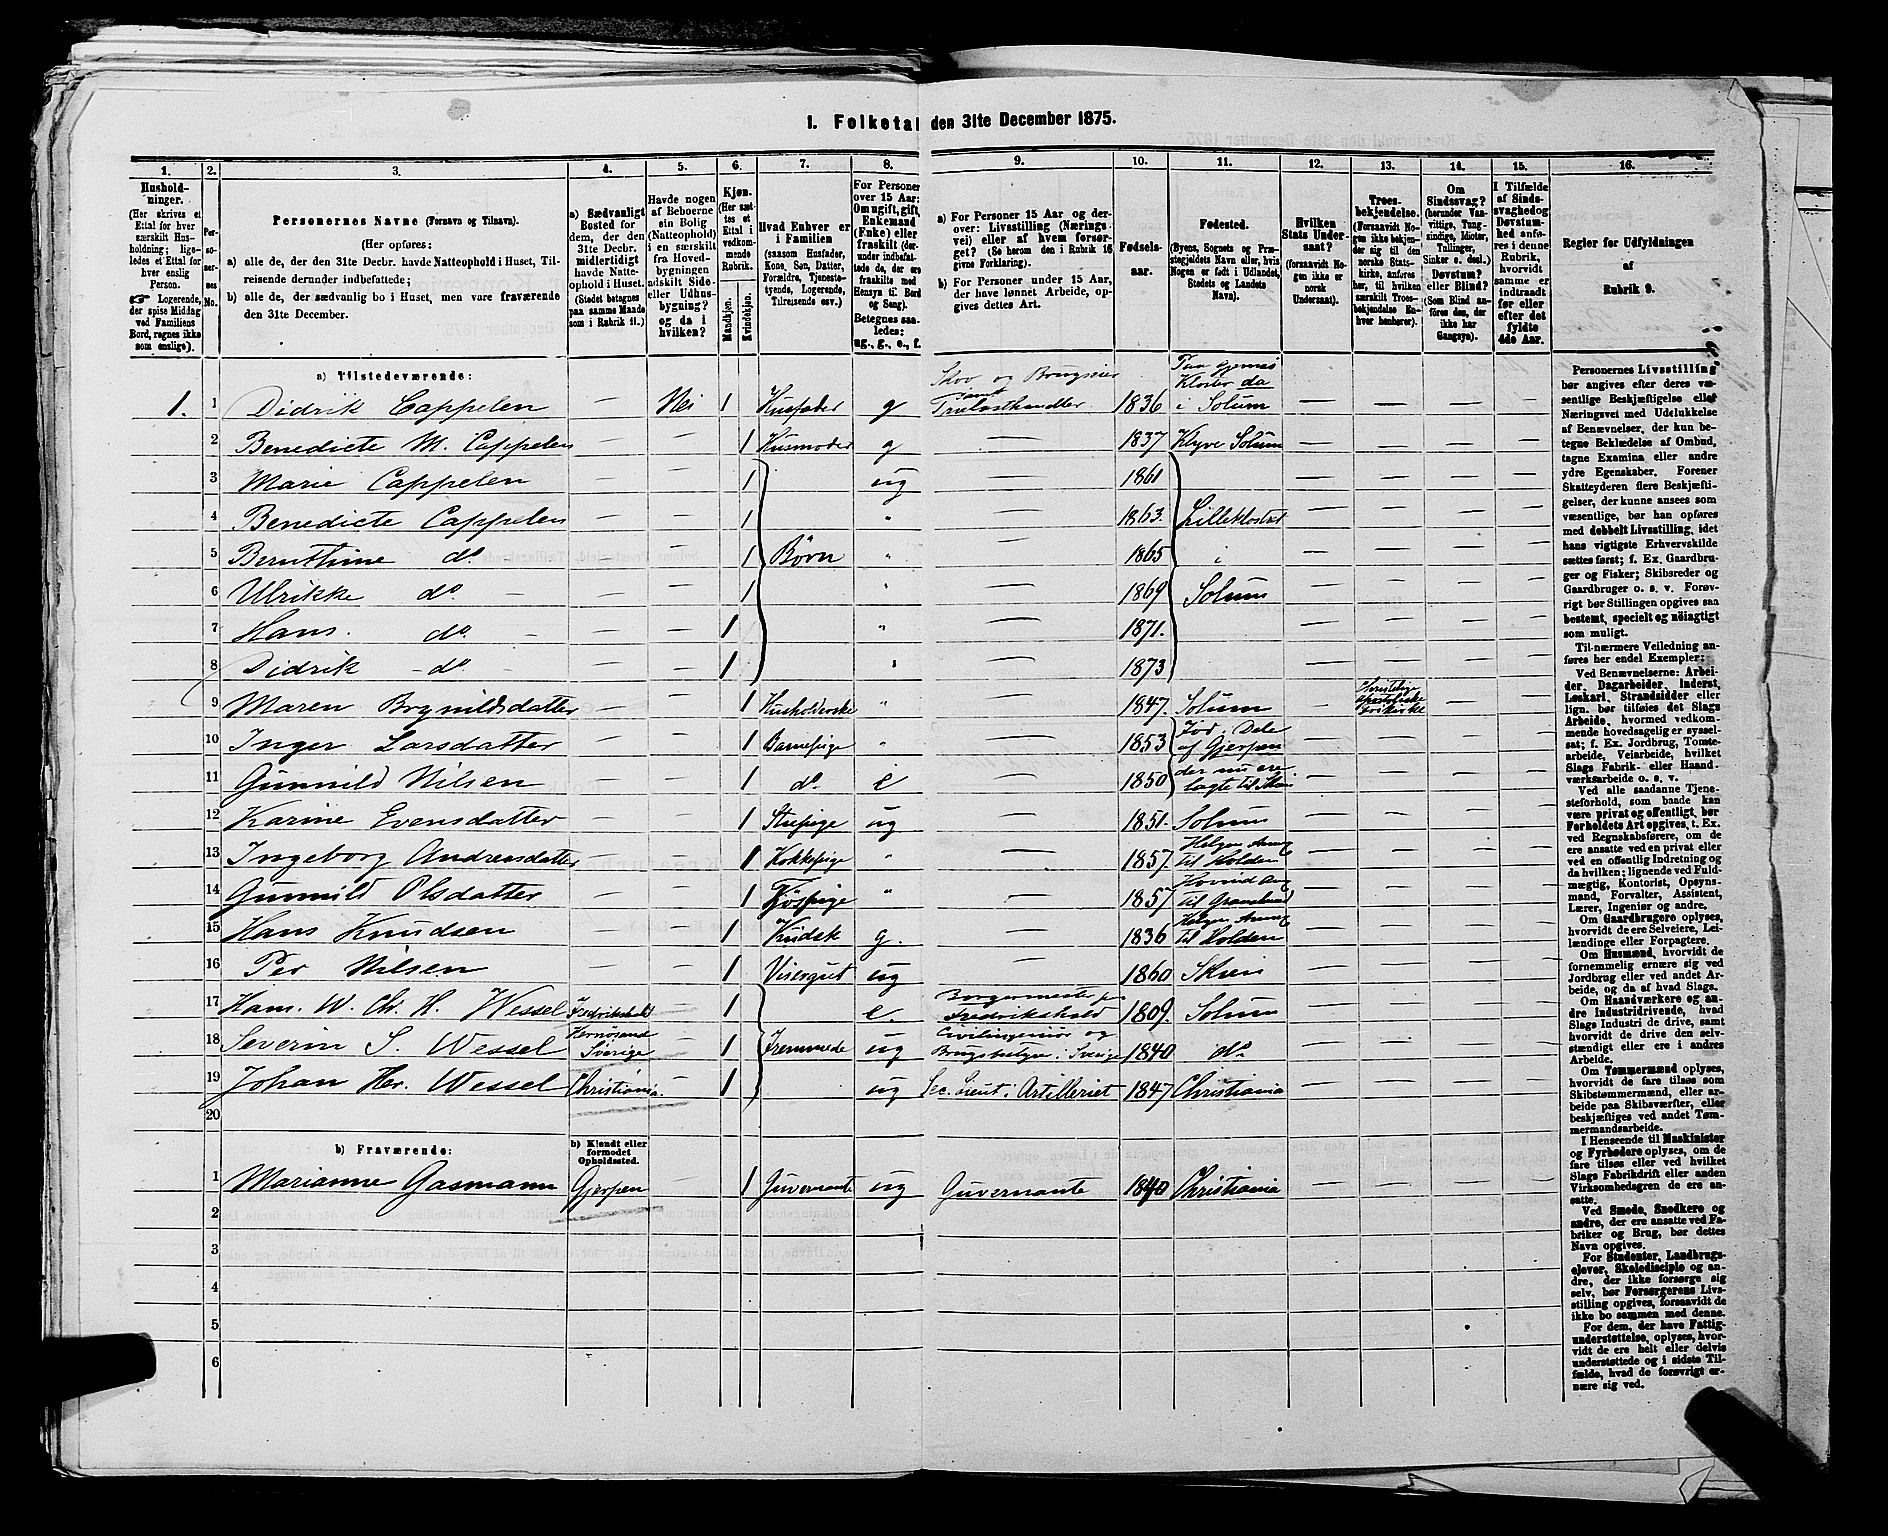 1. Folketal den 31te December 1875.
1. 2. 3. 4. 5. 6. 7. 8. 9. 10. 11. 12. 13. 14. 15. 16.
Hushold-
ninger.
(Her skrives et
Ettal for hver
særskilt Hus-
holdning; lige-
ledes et Ettal for
hver enslig
Person.
☞ Logerende,
der spise Middag
ved Familiens
Bord, regnes ikke
som enslige).
Per-
soner-
nes
No.
Personernes Navne (Fornavn og Tilnavn).
(Her opføres:
a) alle de, der den 31te Decbr. havde Natteophold i Huset, Til-
reisende derunder indbefattede;
b) alle de, der sædvanlig bo i Huset, men vare fraværende
den 31te December.
a) Sædvanligt
Bosted for
dem, der den
31te Decbr.
midlertidigt
havde Natte-
ophold i Huset.
(Stedet betegnes
paa samme Maade
som i Rubrik 11.)
Havde nogen
af Beboerne
sin Bolig
(Natteophold)
i en særskilt
fra Hoved-
bygningen
adskilt Side-
eller Udhus-
bygning?
og da i
hvilken?
Kjøn.
(Her sæt-
tes et
Ettal i
vedkom-
mende
Rubrik.
Mandkjøn.
Kvindekjøn.
Hvad Enhver er
i Familien
(saasom Husfader,
Kone, Søn, Datter,
Forældre, Tjeneste-
tyende, Logerende,
Tilreisende osv.)
For Personer
over 15 Aar:
Om ugift, gift,
Enkemand
(Enke) eller
fraskilt (der-
under indbefat-
tede de, der ere
fraskilte med
Hensyn til Bord
og Seng).
Betegnes saa-
ledes:
ug., g., e., f.
a) For Personer 15 Aar og der-
over: Livsstilling (Nærings-
vei) eller af hvem forsør-
get? (Se herom den i Rubrik 16
givne Forklaring).
b) For Personer under 15 Aar,
der have lønnet Arbeide, op-
gives dettes Art.
Fødsels-
aar.
Fødested.
(Byens, Sognets og Præ-
stegjeldets Navn eller, hvis
Nogen er født i Udlandet,
Stedets og Landets
Navn).
Hvilken
Stats Under-
saat?
(forsaavidt No-
gen ikke er
norsk
Undersaat).
Troes-
bekjendelse.
(Forsaavidt No-
gen ikke bekjen-
der sig til den
norske Stats-
kirke, anføres
her, til hvilken
særskilt Troes-
bekjendelse En-
hver henhører).
Om
Sindssvag?
(herunder Van-
vittige, Tung-
sindige, Idioter,
Tullinger,
Sinker o. desl.)
Døvstum?
eller Blind?
(Som Blind an-
føres den, der
ikke har
Gangsyn).
I Tilfælde
af Sinds-
svaghed og
Døvstum-
hed anfø-
res i denne
Rubrik,
hvorvidt
samme er
indtraadt
før eller
efter det
fyldte
4de Aar.
Regler for Udfyldningen
af
Rubrik 9.
a) Tilstedeværende:
1. 1 Didrik Cappelen — Nei 1 Husfader g Skov og Brugseier samt Trælasthandler 1836 Kloster da i Solum
2 Benedicte M. Cappelen — — 1 Husmoder g — 1837 Klyve Solum — — — —
3 Marie Cappelen — — 1 ug — 1861 — — — —
4 Benedicte Cappelen — — 1 " — 1863. Lilleklostret — — — —
5 Bernthine do. — — 1 Børn " — 1865 i — — — —
6 Ulrikke do. — — 1 " — 1869 Solum — — — —
7 Hans. do. — — 1 " — 1871. — — — —
8 Didrik do — — 1 " — 1873 — — — —
9 Maren Brynildsdatter — — 1 Husholderske " — 1847. Solum — Christelig apostoliske Frikirke — —
10 Inger Larsdatter — — 1 Barnepige " — 1853 Fød i Dele af Gjerpen — — — —
11 Gunnild Nilsen — — 1 do. e — 1850 der nu ere lagte til Skien — — — —
12 Karine Evensdatter — — 1 Stuepige ug — 1851. Solum — — — —
13 Ingeborg Andrensdatter — — 1 Kokkepige " — 1857. Helgen Annex til Holden — — — —
14 Gunnild Olsdatter — — 1 " — 1857 Hovind Anx til Gransherad — — — —
15 Hans Knudsen — — 1 Kudsk g. — 1836 Helgen Annex til Holden — — — —
16 Per Nilsen — — 1 Visergut ug — 1860 Skien — — — —
17 Hans. W. Chr. H. Wessel Fredrikshald — 1 e. Borgermester paa Fredrikshald 1809. Solum — — — —
18 Severin S. Wessel Hernøsand Sverige — 1 Fremmede ug Civilingeniør og Brugsbestyrer i Sverige 1840 do. — — — —
19 Johan Her. Wessel Christiania. — 1 ug Sec. Lieut i Artilleriet 1847 Christiania — — — —
20
b) Fraværende:
b) Kjendt eller
formodet
Opholdssted.
1 Marianne Gasmann Gjerpen — 1 Guvernante ug Guvernante 1840 Christiania — — — —
2
3
4
5
6
Personernes Livsstilling
bør angives efter deres væ-
sentlige Beskjæftigelse eller
Næringsvei med Udelukkelse
af Benævnelser, der kun be-
tegne Beklædelse af Ombud,
tagne Examina eller andre
ydre Egenskaber. Forener
Skatteyderen flere Beskjæfti-
gelser, der kunne ansees som
væsentlige, bør han opføres
med dobbelt Livsstilling, idet
hans vigtigste Erhvervskilde
sættes først; f. Ex. Gaardbru-
ger og Fisker; Skibsreder og
Gaardbruger o. s. v. Forøv-
rigt bør Stillingen opgives saa
bestemt, specielt og nøiagtigt
som muligt.
Til nærmere Veiledning an-
føres her endel Exempler:
Ved Benævnelserne: Arbei-
der, Dagarbeider, Inderst,
Løskarl, Strandsidder eller
lign. bør tilføies det Slags
Arbeide, hvormed vedkom-
mende hovedsagelig er syssel-
sat; f. Ex. Jordbrug, Tomte-
arbeide, Veiarbeide, hvilket
Slags Fabrik- eller Haand-
værksarbeide o. s. v.
Ved alle saadanne Tjene-
steforhold, som baade kan
være privat og offentligt, bør
Forholdets Art opgives, t. Ex.
ved Regnskabsførere, om de
ere ansatte ved en privat eller
ved en offentlig Indretning og
da hvilken; lignende ved Fuld-
mægtig, Kontorist, Opsyns-
mand, Forvalter, Assistent,
Lærer, Ingeniør og andre.
Om Gaardbrugere oplyses,
hvorvidt de ere Selveiere, Lei-
lændinge eller Forpagtere.
Om Husmænd, hvorvidt de
fornemmelig ernære sig ved
Jordbrug eller ved andet Ar-
beide, og da af hvad Slags.
Om Haandværkere og an-
dre Industridrivende, hvad
Slags Industri de drive, samt
hvorvidt de drive den selv-
stændigt eller ere i andres
Arbeide.
Om Tømmermænd oplyses,
hvorvidt de fare tilsøs som
Skibstømmermænd, eller ar-
beide paa Skibsværfter, eller
beskjæftiges ved andet Tøm-
mermandsarbeide.
I Henseende til Maskinister
og Fyrbødere oplyses, om de
fare tilsøs eller ved hvilket
Slags Fabrikdrift eller anden
Virksomhedsgren de ere an-
satte.
Ved Smede, Snedkere og
andre, der ere ansatte ved Fa-
briker og Brug, bør dettes
Navn opgives.
For Studenter, Landbrugs-
elever, Skoledisciple og an-
dre, der ikke forsørge sig
selv, bør Forsørgerens Livs-
stilling opgives, forsaavidt de
ikke bo sammen med denne.
For dem, der have Fattig-
understøttelse, oplyses, hvor-
vidt de ere helt eller delvis
understøttede og i sidste Til-
fælde, hvad de forøvrigt er-
nære sig ved.